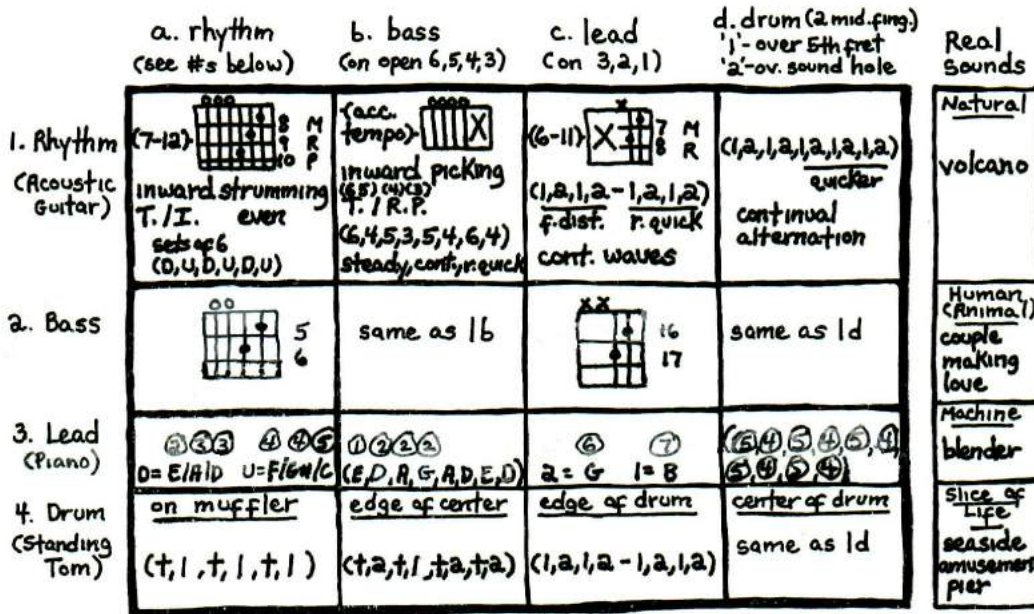 a. rhythm
(see #s below)
b. bass
(on open 6,5,4,3)
c. lead
(on 3,2,1)
d. drum (2 mid.fing.)
'1'- over 5th fret
'2'-ov. sound hole
Real
Sounds
1. Rhythm
(Acoustic
Guitar)
ooo
(7-12)
8 M
9 R
10 P
inward strumming
T./I. even
sets of 6
(D,U,D,U,D,U)
(acc.
tempo)
oooo
X
inward picking
(6,5) (4)(3)
T. / R.P.
(6,4,5,3,5,4,6,4)
steady, cont., r. quick
x
(6-11)
X
7 M
8 R
(1,2,1,2-1,2,1,2)
f. dist. r. quick
cont. waves
(1,2,1,2,1,2,1,2,1,2)
quicker
continual
alternation
Natural
volcano
2. Bass
oo
5
6
same as 1b
xx
16
17
same as 1d
Human
(Animal)
couple
making
love
3. Lead
(Piano)
2 3 3 4 4 5
D=E/A/D U=F/G#/C
1 2 2 2
(E,D,A,G,A,D,E,D)
6 7
2=G 1=B
(5,4,5,4,5,4,
5,4,5,4)
Machine
blender
4. Drum
(Standing
Tom)
on muffler
(t,1,t,1,t,1)
edge of center
(t,2,t,1,t,2,t,2)
edge of drum
(1,2,1,2-1,2,1,2)
center of drum
same as 1d
Slice of
Life
seaside
amusement
pier